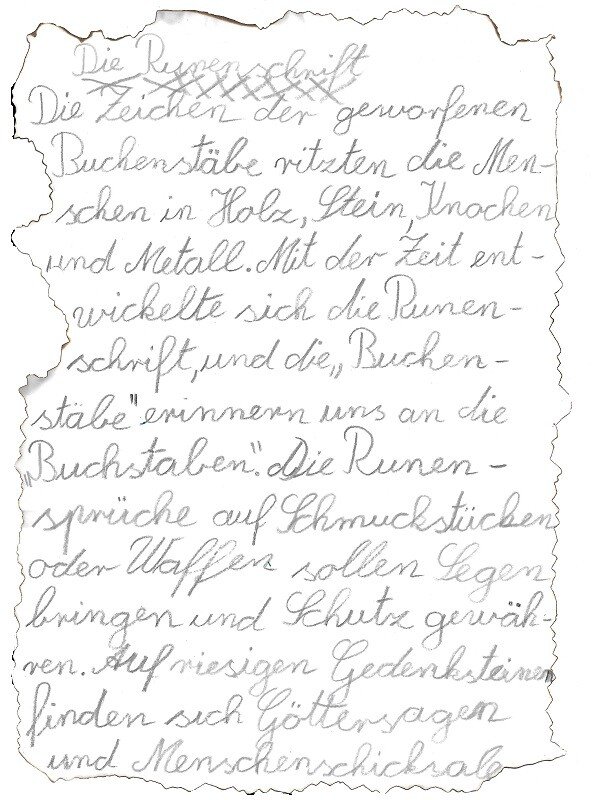 Die Runenschrift
Die Zeichen der geworfenen
Buchenstäbe ritzten die Men-
schen in Holz, Stein, Knochen
und Metall. Mit der Zeit ent-
wickelte sich die Runen-
schrift, und die „Buchen-
stäbe" erinnern uns an die
„Buchstaben". Die Runen-
sprüche auf Schmuckstücken
oder Waffen sollen Segen
bringen und Schutz gewäh-
ren. Auf riesigen Gedenksteinen
finden sich Göttersagen
und Menschenschicksale